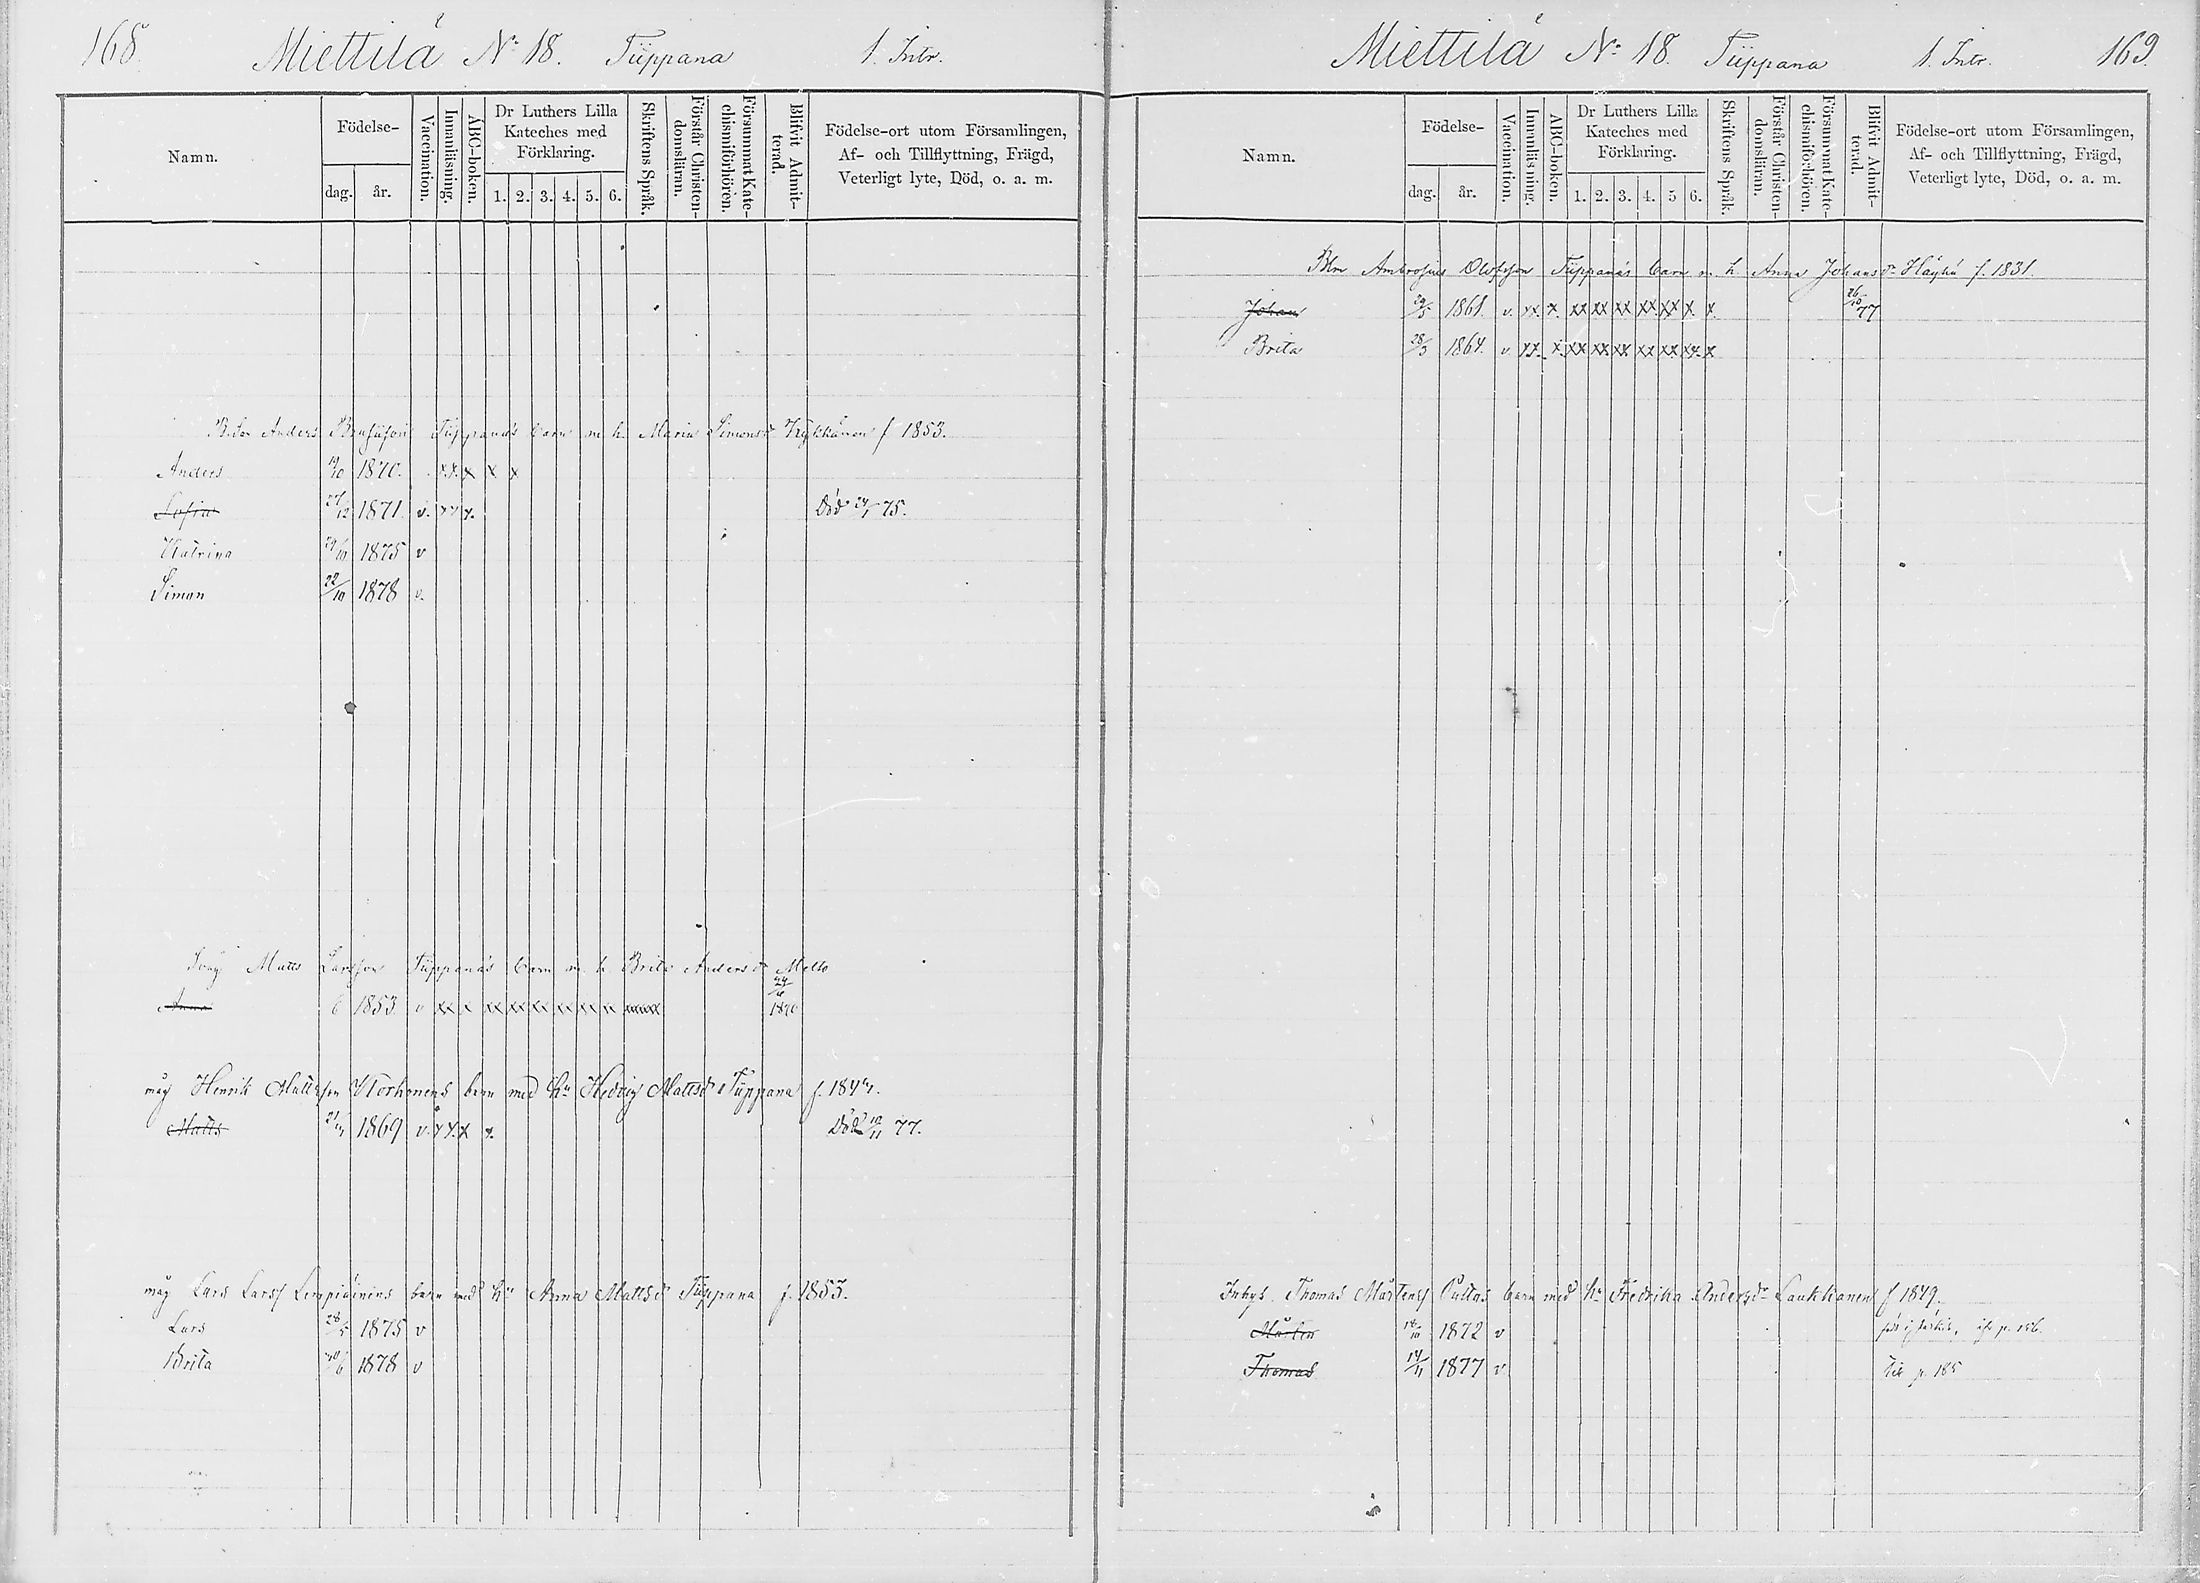 168. Miettilä No 18. Tiippana 1. Intr.
Namn. Födelse- dag. år. Vaccination. Innanläsning. ABC-boken. Dr Luthers Lilla Kateches med Förklaring. 1. 2. 3. 4. 5. 6. Skriftens Språk. Förstår Christendomsläran. Försummat Katechismiförhören. Blifvit Admitterad. Födelse-ort utom Församlingen, Af- och Tillflyttning, Frägd, Veterligt lyte, Död, o. a. m.
Anders Tiippanas barn m. h. Maria Simonsdr f 1853.
Anders 1870. x x x x x
Sofia 1871. v. x x x. Död 75.
Katrina 1875 v
Simon 22/10 1878 v.
Matts Larsson Tiippanas barn m. h. Brita Andersdr
Anna 6 1853 v xx x xx xx xx xx xx x
måg Henrik Mattsson Korhonens barn med hu Hedvig Mattsdr Tiippana f. 1844.
Matts 1869 v. x x x x. Död 77.
måg Lars Larss barn med hu Anna Mattsdr Tiippana f. 1853.
Lars 28/5 1875 v
Brita 1878 v
Miettilä No 18. Tiippana 1. Intr. 169.
Namn. Födelse- dag. år. Vaccination. Innanläsning. ABC-boken. Dr Luthers Lilla Kateches med Förklaring. 1. 2. 3. 4. 5 6. Skriftens Språk. Förstår Christendomsläran. Försummat Katechismiförhören. Blifvit Admitterad. Födelse-ort utom Församlingen, Af- och Tillflyttning, Frägd, Veterligt lyte, Död, o. a. m.
Ambrosius Olofsson Tiippanas barn m. h. Anna Johansdr Häyhä f. 1831.
Johan 29/5 1861. v. xx. x. xx xx xx xx xx x x. 26/10 77
Brita 28/3 1864. v. xx. x. xx xx xx xx xx xx x
Inhys. Thomas Mårtenss barn med hu Fredrika Andersdr Laukkanen f 1849.
Mårten 1872 v
Thomas 14/11 1877 v. p. 185